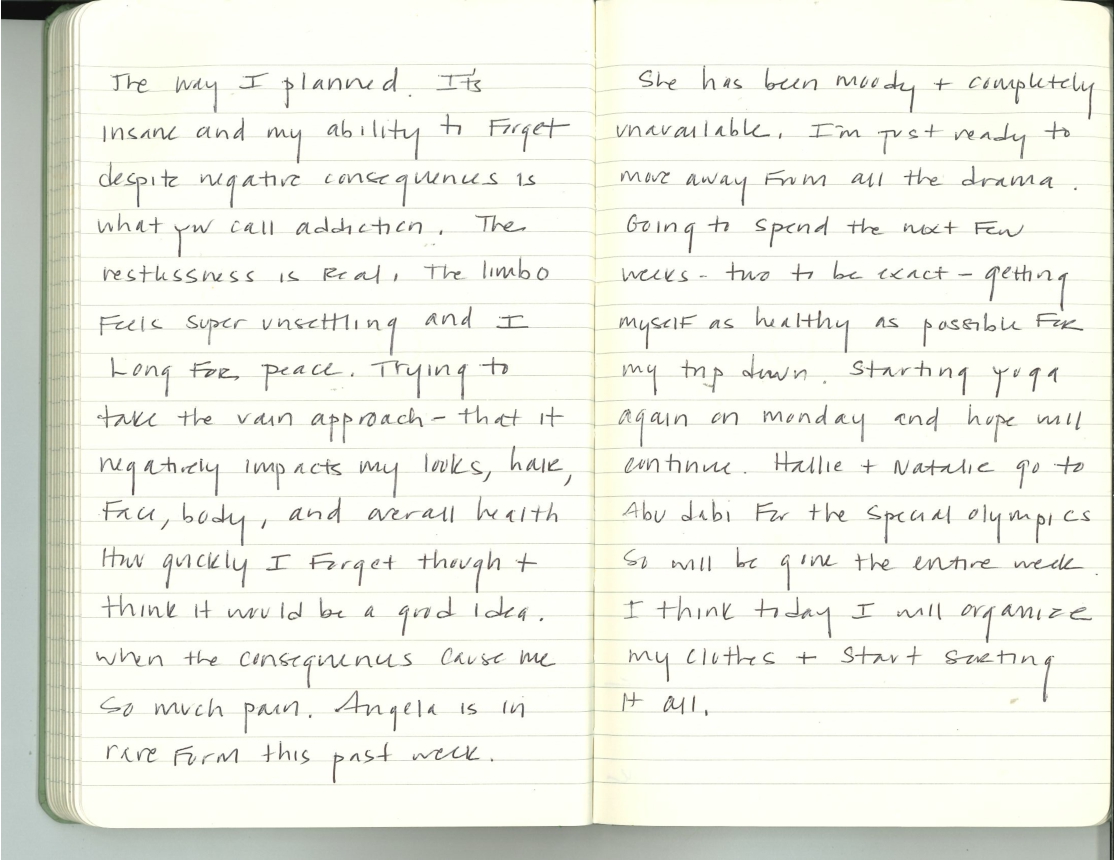 The way I planned. It's
insane and my ability to Forget
despite negative consequences is
what you call addiction. The
restlessness is Real. The limbo
Feels super unsettling and I
Long For peace. Trying to
take the vain approach - that it
negatively impacts my looks, hair,
Face, body, and overall health
How quickly I Forget though +
think it would be a good idea.
when the consequences cause me
so much pain. Angela is in
rare Form this past week.
She has been moody + completely
unavailable. I'm just ready to
move away From all the drama.
Going to spend the next Few
weeks - two to be exact - getting
myself as healthy as possible For
my trip down. Starting yoga
again on monday and hope will
continue. Hallie + Natalie go to
Abu dabi For the Special olympics
so will be gone the entire week.
I think today I will organize
my clothes + Start sorting
it all.